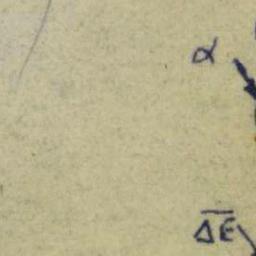 α
\overline{ΔE}